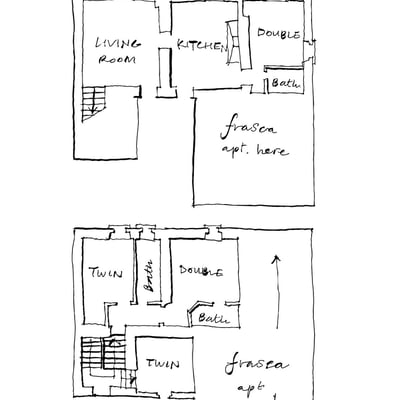 LIVING
ROOM
KITCHEN
DOUBLE
Bath
frasca
apt. here
TWIN
Bath
DOUBLE
Bath
TWIN
frasca
apt